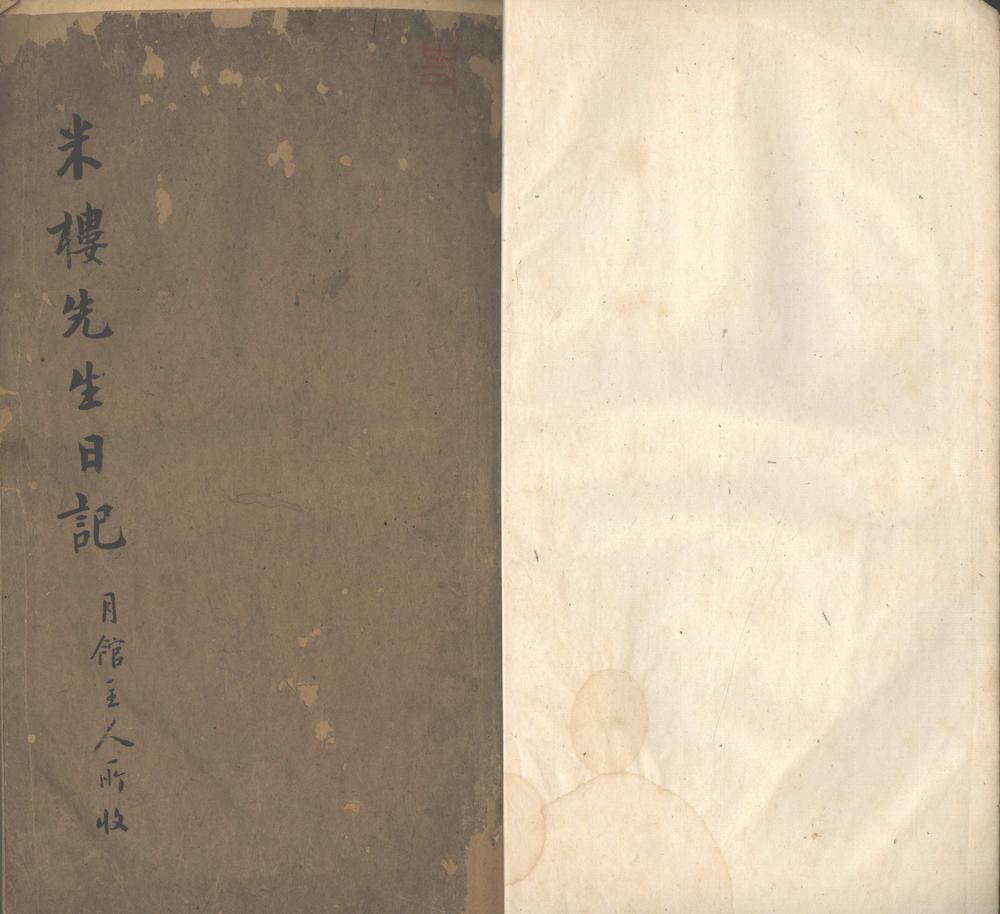 米樓先生日記
月館主人所收